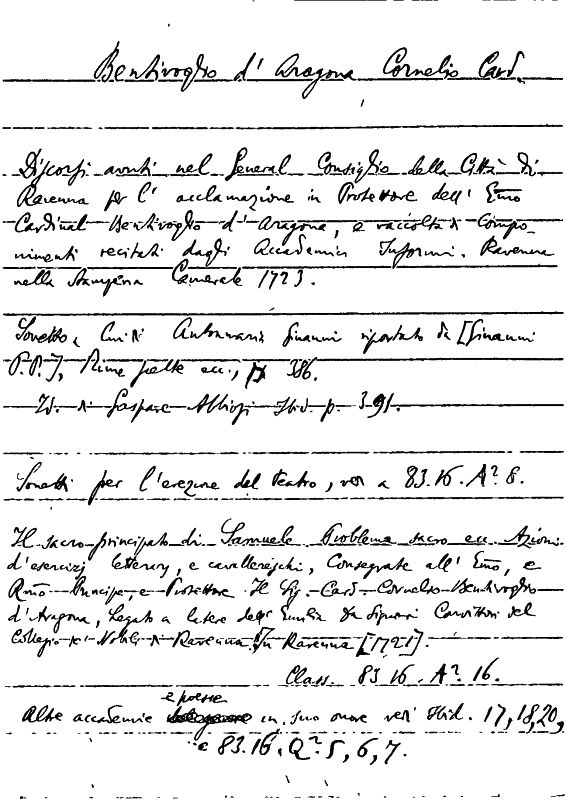 Bentivoglio d'Aragona Cornelio Card.
Discorsi avuti nel General Consiglio della Città di
Ravenna per l'acclamazione in Protettore dell'Emo
Cardinal Bentivoglio d'Aragona, e raccolta di Compo-
nimenti recitati dagli Accademici Informi. Ravenna
nella Stamperia Camerale 1723.
Sonetto a Lui di Antonmaria Ginanni riportato da [Ginanni
P.P.], Rime scelte ecc., p. 386.
Id. di Gaspare Ibid. p. 391.
Sonetti per l'erezione del Teatro, vedi a 83.16.Aº8.
Il sacro principato di Samuele Problema sacro ecc. Azioni
d'esercizj letterarj, e cavallereschi, Consegrate all'Emo, e
Rmo Principe, e Protettore Il Sig. Card. Cornelio Bentivoglio
d'Aragona, Legato a latere dell'Emilia Da Signori Convittori del
Collegio de' Nobili di Ravenna. In Ravenna [1721].
Class. 83.16.Aº.16.
e poesie
Altre accademie in suo onore vedi Ibid. 17,18,20,
e 83.16.Qº.5,6,7.